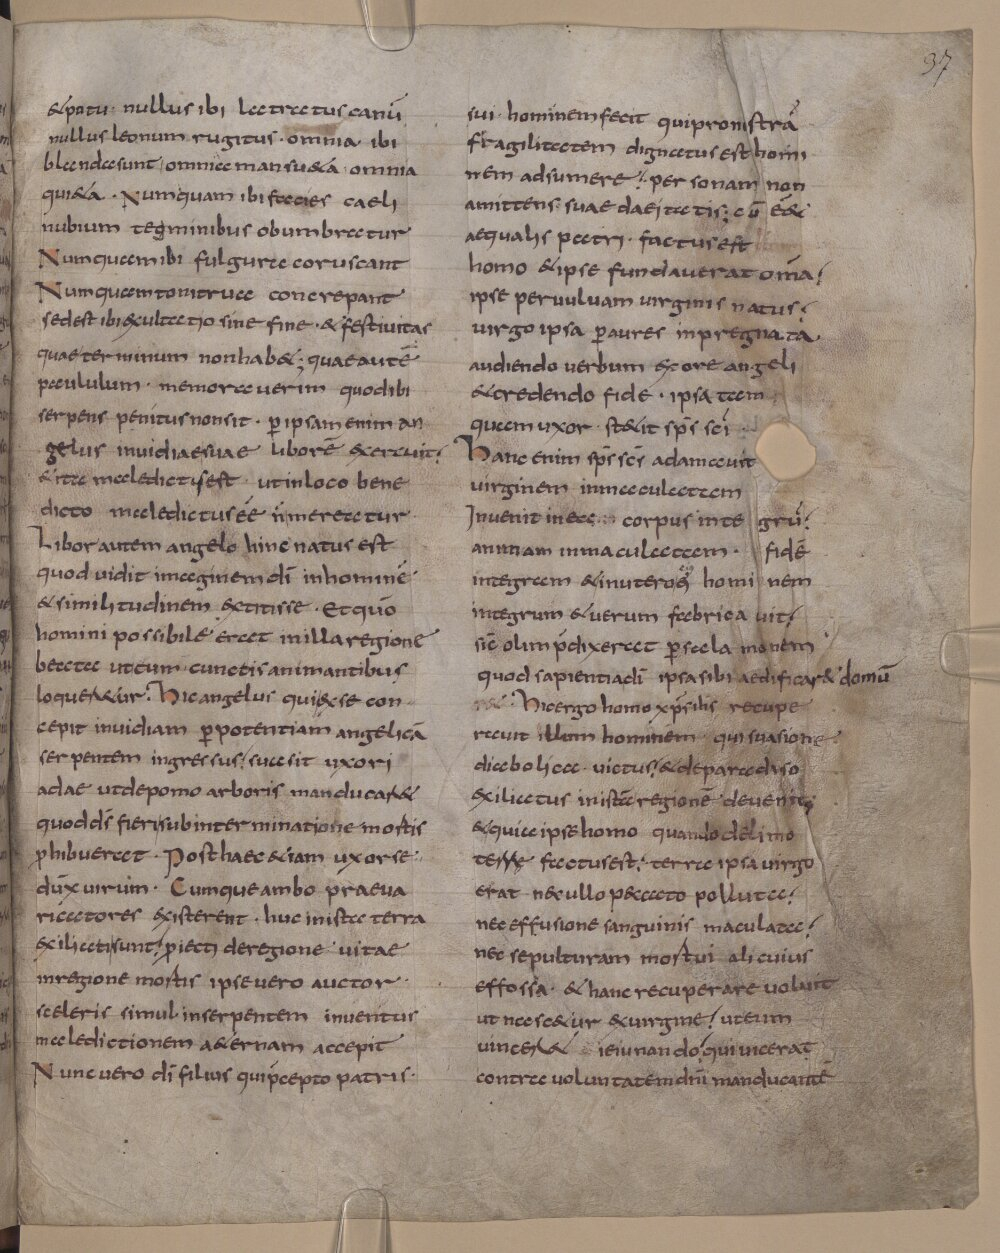 37
&potu· nullus ibi latratus canū
nullus leonum rugitus· omnia ibi
blanda sunt omnia mansu&a· omnia
qui&a· Numquam ibi facies caeli
nubium tegminibus obumbratur
Numquam ibi fulgura coruscant
Numquam tonitrua concrepant
sed est ibi exultatio sine fine· & festivitas
quae terminum non hab&; quae autē
paululum· memoraverim quod ibi
serpens penitus non sit· p ipsam enim an
gelus invidiae suae liborē exercuit
& ita maledictus est· ut in loco bene
dicto maledictus ēē n̄ meretur
Libor autem angelo hinc natus est
quod vidit imaginem dī in hominē
& similitudinem extitisse· Et quō
homini possibile erat in illa regione
beata ut cum cunctis animantibus
loquer&ur· Hic angelus qui ex se con
cepit invidiam p potentiam angelicā
serpentem ingressus suasit uxori
adae ut de pomo arboris manducar&
quod ds fieri sub interminatione mortis
phibuerat· Post haec &iam uxor se
dux virum· Cumque ambo praeva
ricatores existerent· huc in ista terra
exiliati sunt piecti de regione vitae
in regione mortis ipse vero auctor
sceleris simul in serpentem inventus
maledictionem a&ernam accepit
Nunc vero dī filius qui pcepto patris·
sui· hominem fecit qui pro nostrā
fragilitatem dignatus est homi
nem adsumere personam non
amittens suae daeitatis; cū ē&
aequalis patri· factus est
homo & ipse fundaverat omīa
ipse per vulvam virginis natus
virgo ipsa p aures inpregnata
audiendo verbum ex ore angeli
& credendo fide· ipsa tam
quam uxor· st&it sp̄s scī
Hanc enim sp̄s scs adamavit
virginem inmaculatam
Invenit in ea corpus inte grū
animam inmaculatam· fidē
integram & in utero homi nem
integrum & verum fabricavit
sic olim pdixerat p salamonem
quod sapientia dī ipsa sibi aedificar& domū
Hic ergo homo xp̄s filis recupe
ravit illum hominem· qui suasione
diabolica· victus & de paradiso
exiliatus in ista regionē devenit;
& quia ipse homo quando de limo
terre factus est terra ipsa virgo
erat nec ullo peccato polluta
nec effusione sanguinis maculata
nec sepulturam mortui alicuius
effossa· & hanc recuperare voluit
ut nasc&ur ex virgine ut eum
vincer& ieiunando qui vicerat
contra voluntatem dni manducantē